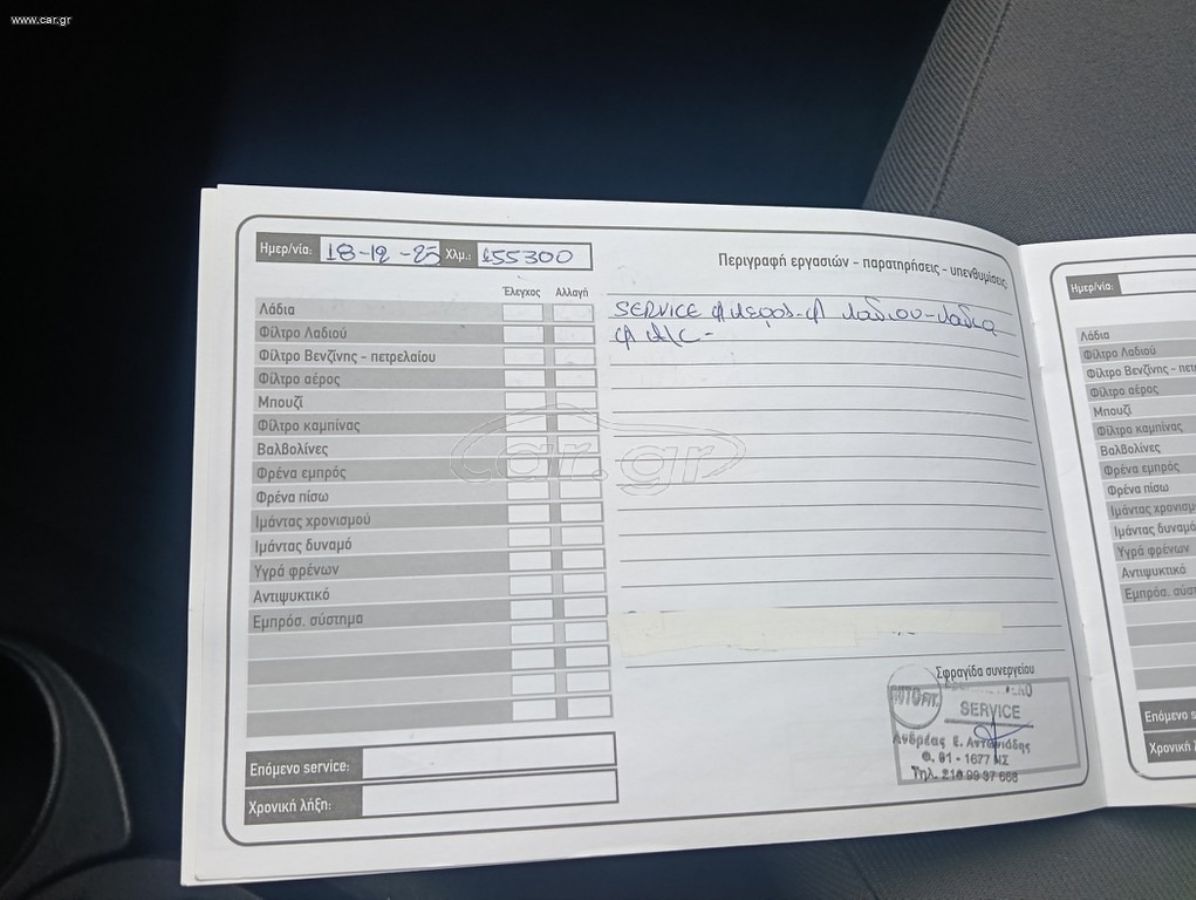 www.car.gr
Ημερ/νία: 18-12-25 Χλμ.: 155300
Έλεγχος Αλλαγή
Λάδια
Φίλτρο Λαδιού
Φίλτρο Βενζίνης - πετρελαίου
Φίλτρο αέρος
Μπουζί
Φίλτρο καμπίνας
Βαλβολίνες
Φρένα εμπρός
Φρένα πίσω
Ιμάντας χρονισμού
Ιμάντας δυναμό
Υγρά φρένων
Αντιψυκτικό
Εμπρόσ. σύστημα
Επόμενο service:
Χρονική λήξη:
Περιγραφή εργασιών - παρατηρήσεις - υπενθυμίσεις:
SERVICE φ αερος-φ λαδιου-λαδια
φ A/C -
car.gr
Σφραγίδα συνεργείου
SERVICE
Ανδρέας Ε. Αντωνιάδης
Τηλ. 210 99 37 668
Ημερ/νία:
Λάδια
Φίλτρο Λαδιού
Φίλτρο Βενζίνης - πετ
Φίλτρο αέρος
Μπουζί
Φίλτρο καμπίνας
Βαλβολίνες
Φρένα εμπρός
Φρένα πίσω
Ιμάντας χρονισμ
Ιμάντας δυναμό
Υγρά φρένων
Αντιψυκτικό
Εμπρόσ. σύστ
Επόμενο s
Χρονική λή